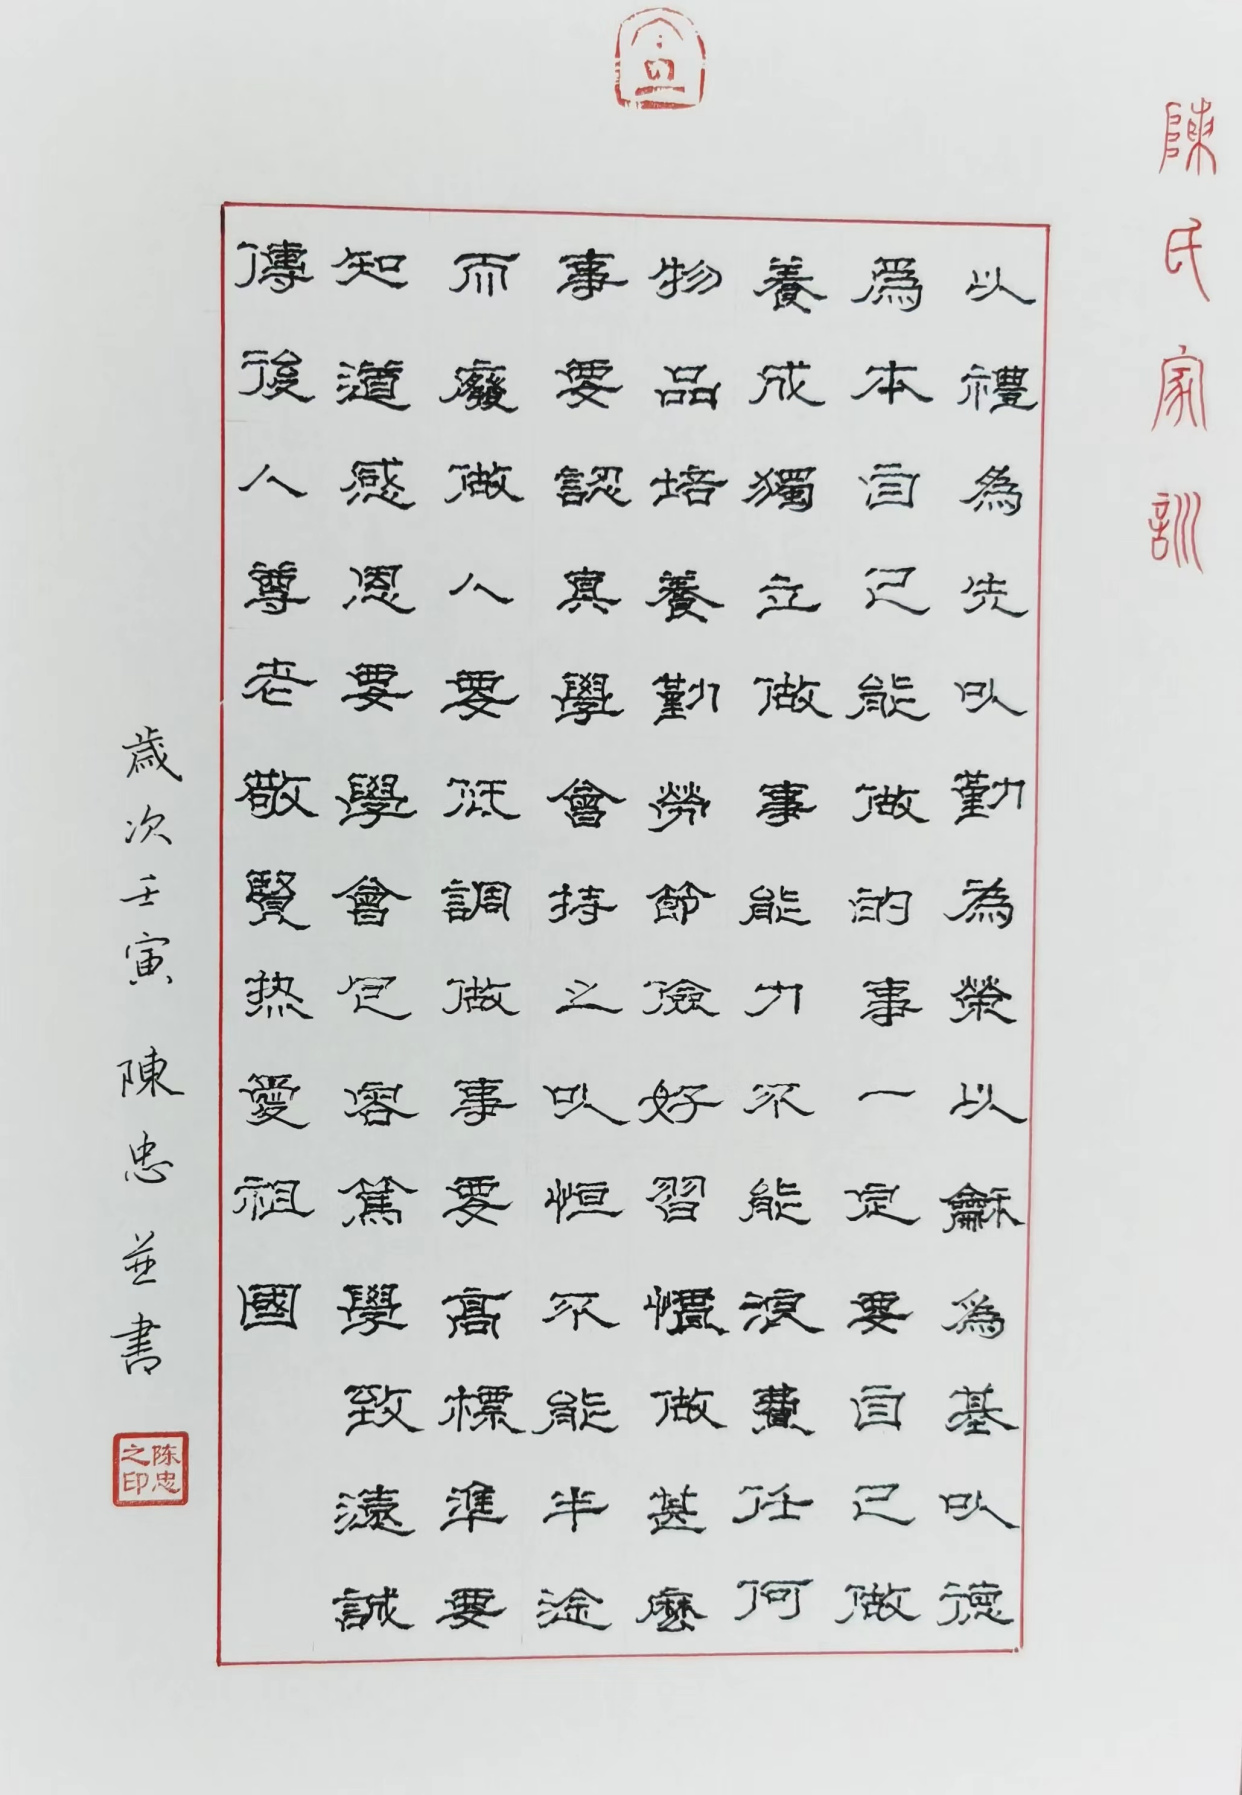 陳氏家訓
以禮為先以勤為榮以龢為基以德
爲本自己能做的事一定要自己做
養成獨立做事能力不能浪費任何
物品培養勤勞節儉好習慣做甚麼
事要認真學會持之以恒不能半途
而廢做人要低調做事要高標準要
知道感恩要學會包容篤學致遠誠
傳後人尊老敬賢热愛祖國
歲次壬寅 陳忠並書
陈忠之印